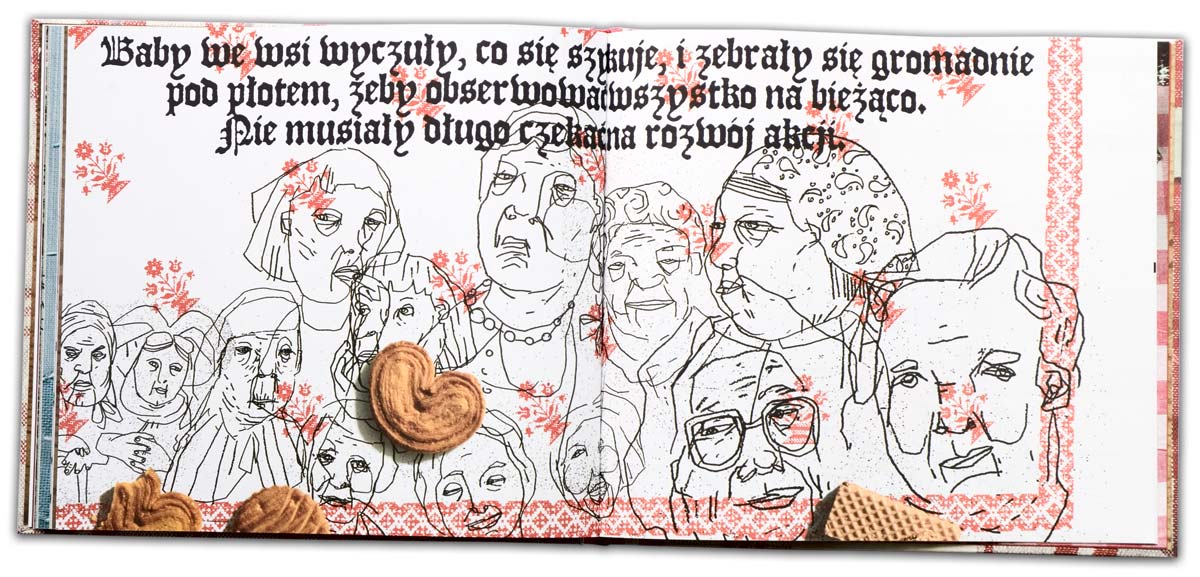 Baby we wsi wyczuły, co się szykuje, i zebrały się gromadnie
pod płotem, żeby obserwować wszystko na bieżąco.
Nie musiały długo czekać na rozwój akcji.